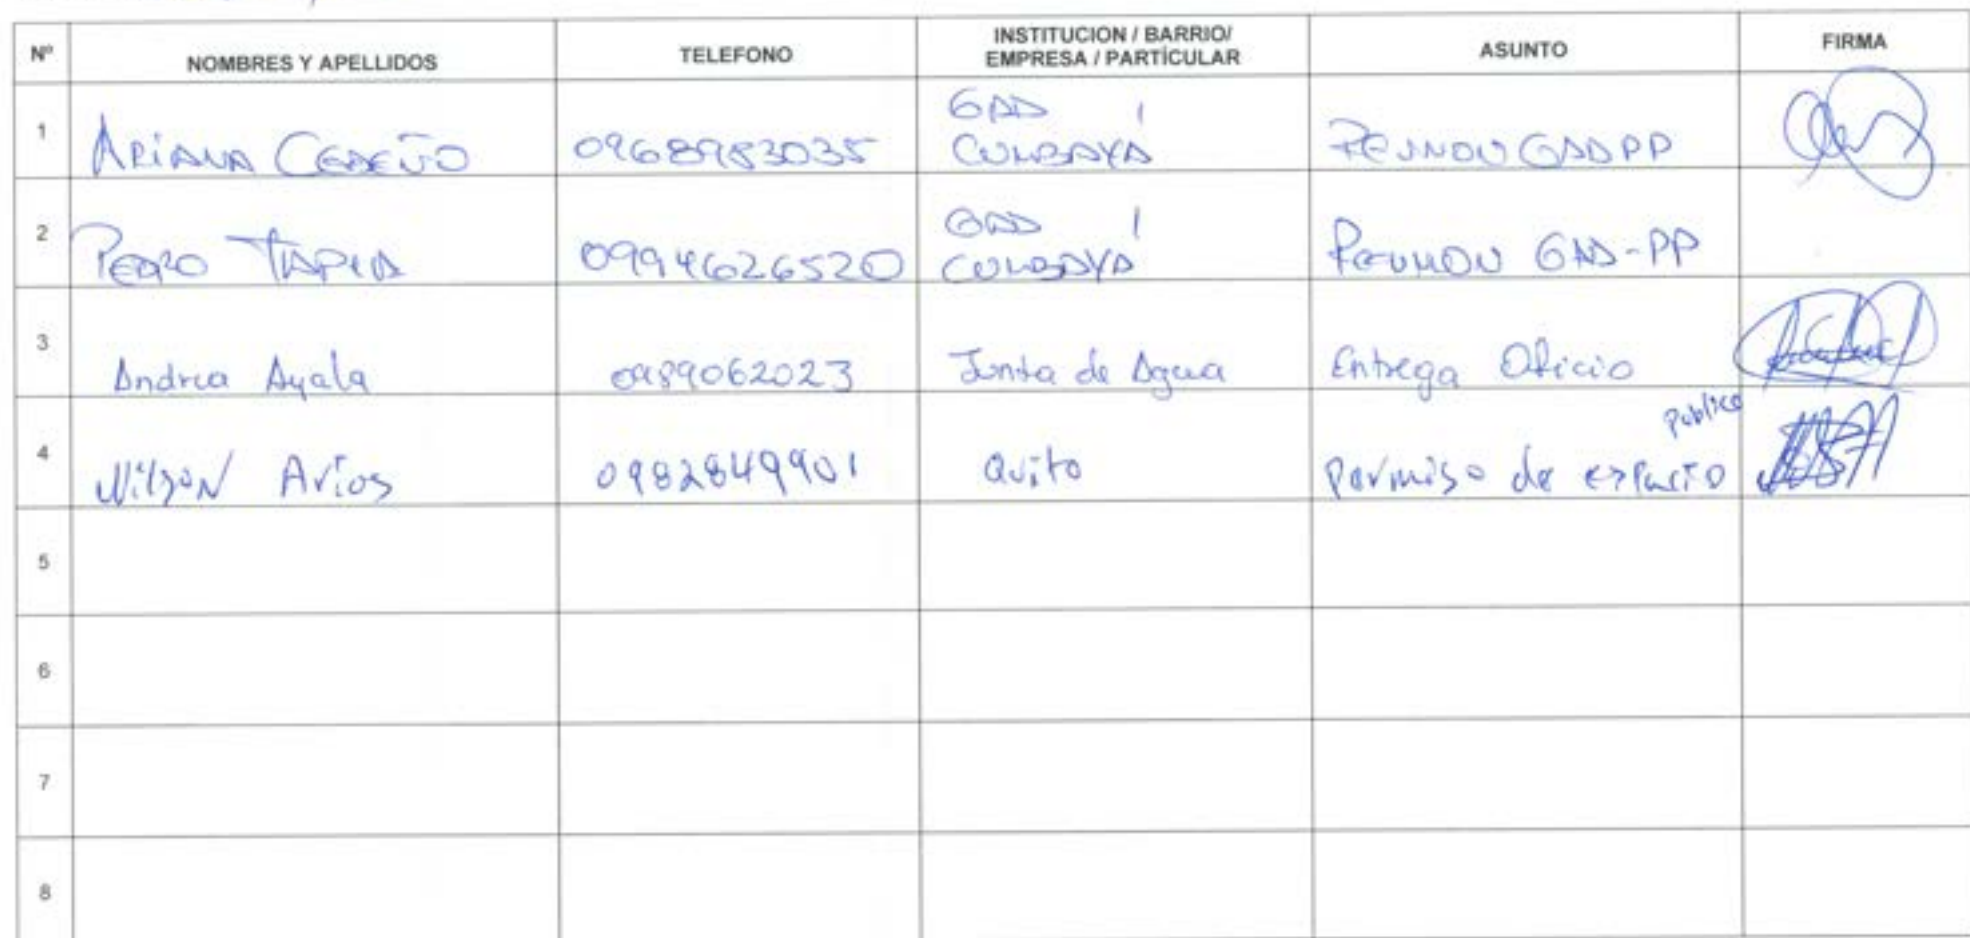 Nº NOMBRES Y APELLIDOS TELEFONO INSTITUCION / BARRIO/ EMPRESA / PARTÍCULAR ASUNTO FIRMA
1 ARIANA CEDEÑO 0968983035 GAD CUMBAYÁ REUNION GADPP
2 PEDRO TAPIA 0994626520 GAD CUMBAYÁ REUNION GAD-PP
3 Andrea Ayala 0989062023 Junta de Agua Entrega Oficio
4 Wilson Arios 0982849901 Quito Permiso de espacio publico
5
6
7
8